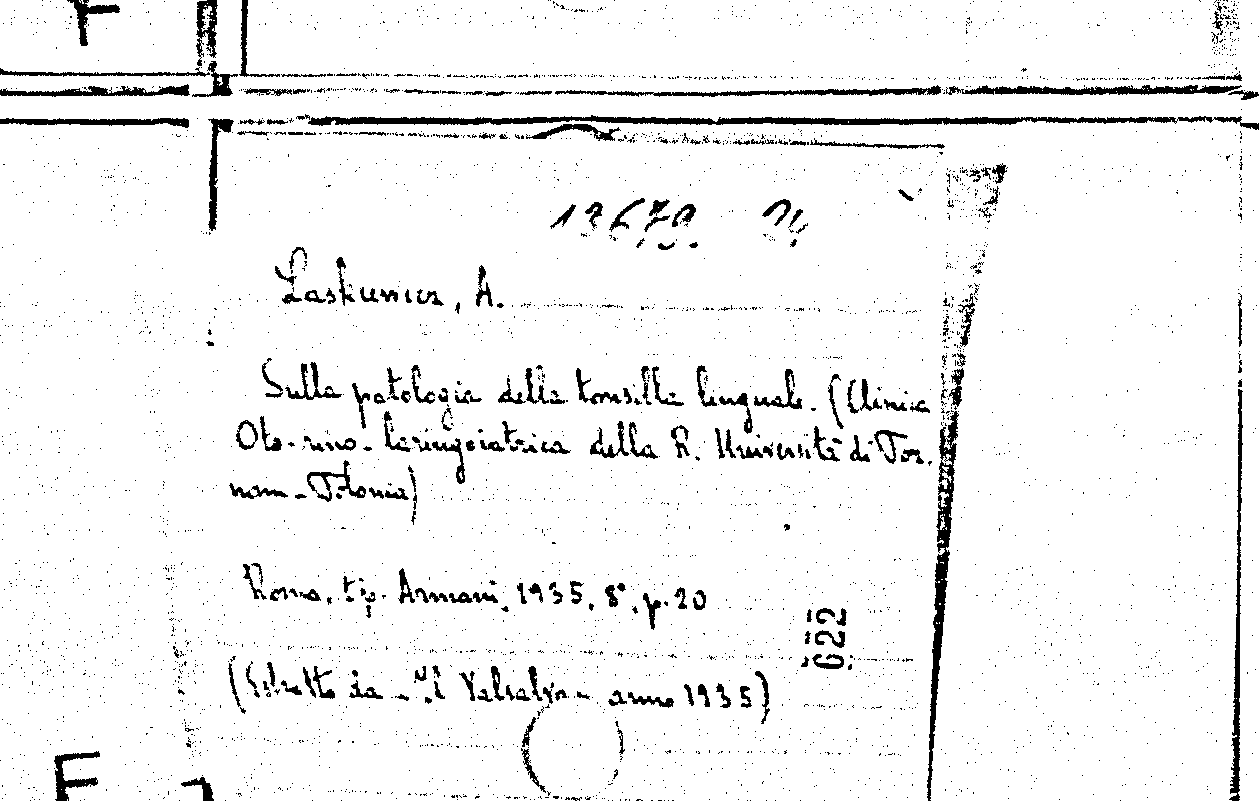 F
13679.
Laskiewicz, A.
Sulla patologia della tonsilla linguale. (Clinica
Oto-rino-laringoiatrica della R. Università di Poz.
nam - Polonia)
Roma, tip. Armani, 1935, 8°, p. 20
622
(Estratto da - "Il Valsalva" - anno 1935)
F